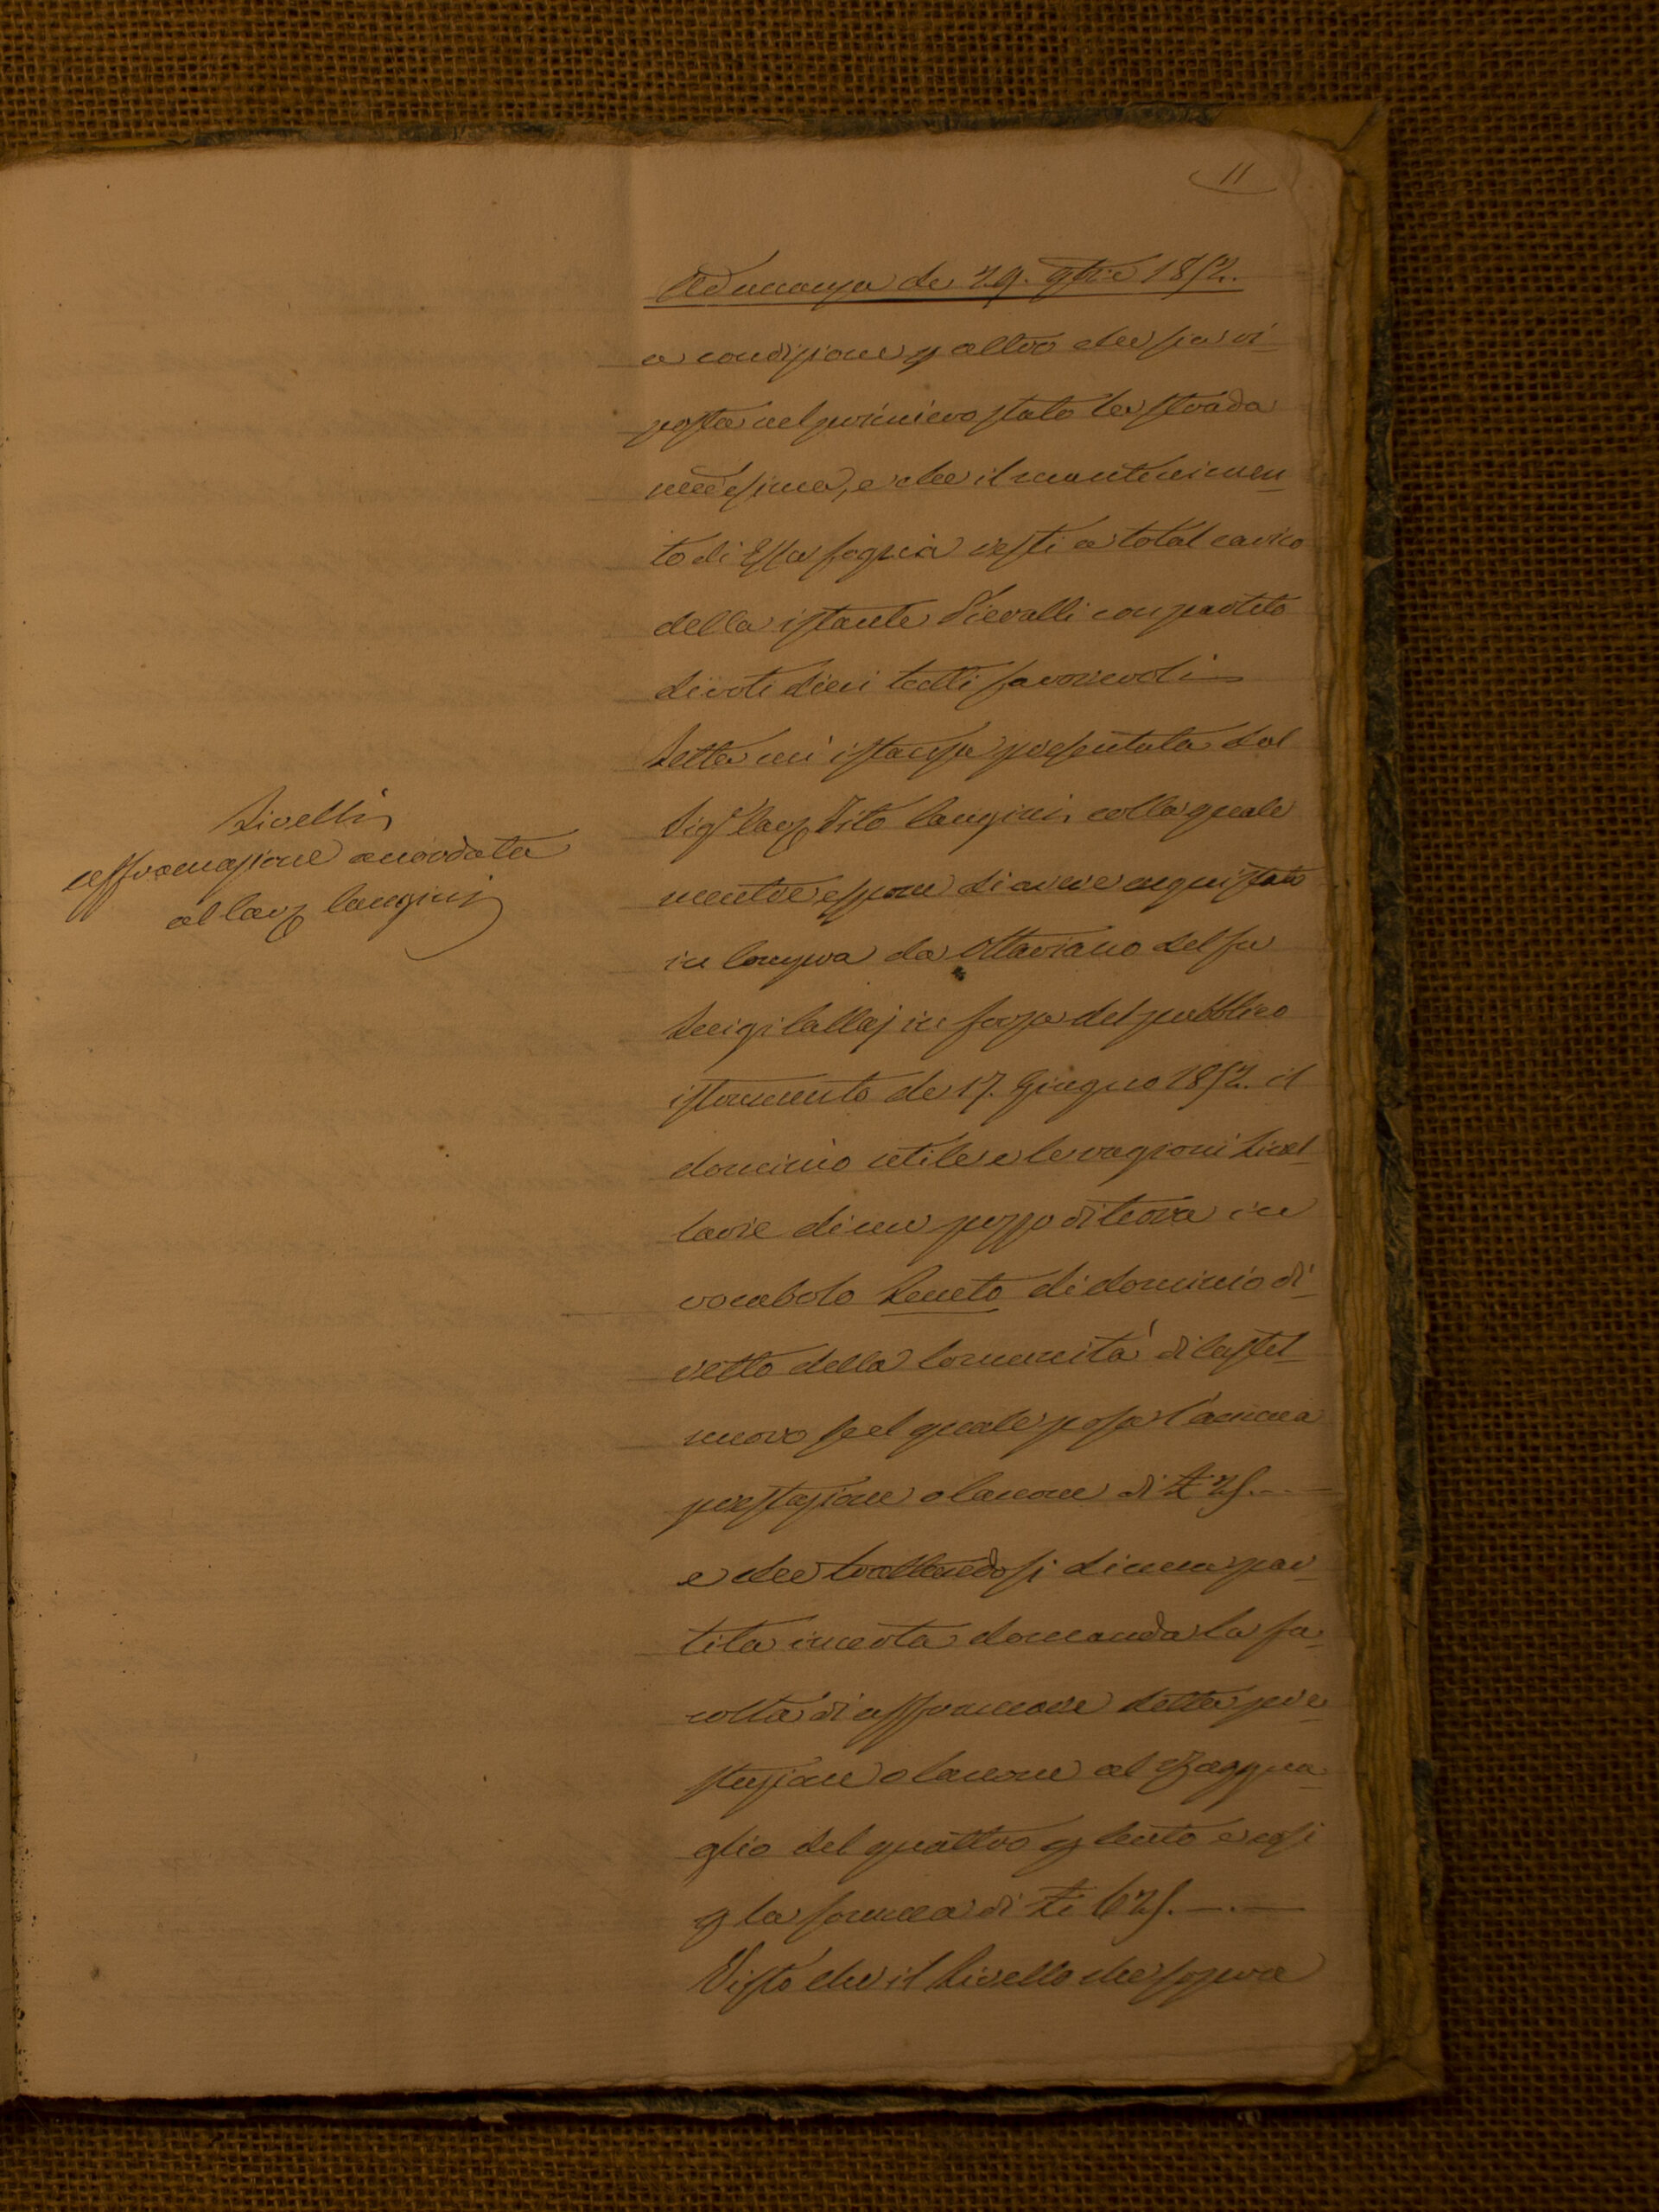 11
Adunanza de 29. 9bre 1852.
a condizione p altro che sia ri-
posta nel primiero stato la strada
medesima, e che il mantenimen
to di Essa fogna resti a total carico
della istante Pieralli con partito
di voti dieci tutti favorevoli
Letta un istanza presentata dal
Sigr Tito Cangini, colla quale
Livelli
affrancazione accordata
al Cangini
mentre espone di avere acquistato
in Compra da Ottaviano del fu
Luigi Callaj in forza del pubblico
istrumento de 17. Giugno 1852. il
dominio utile e le ragioni Livel
larie di un pezzo di terra in
vocabolo di dominio di
retto della Comunità di Castel
nuovo sul quale posa l'annua
prestazione o Canone di £ 25. –
e che trattandosi di una par
tita incerta domanda la fa
coltà di affrancare detta pre
stazione o Canone al raggua
glio del quattro p Cento e così
p la somma di £ 625. –
Visto che il Livello che sopra